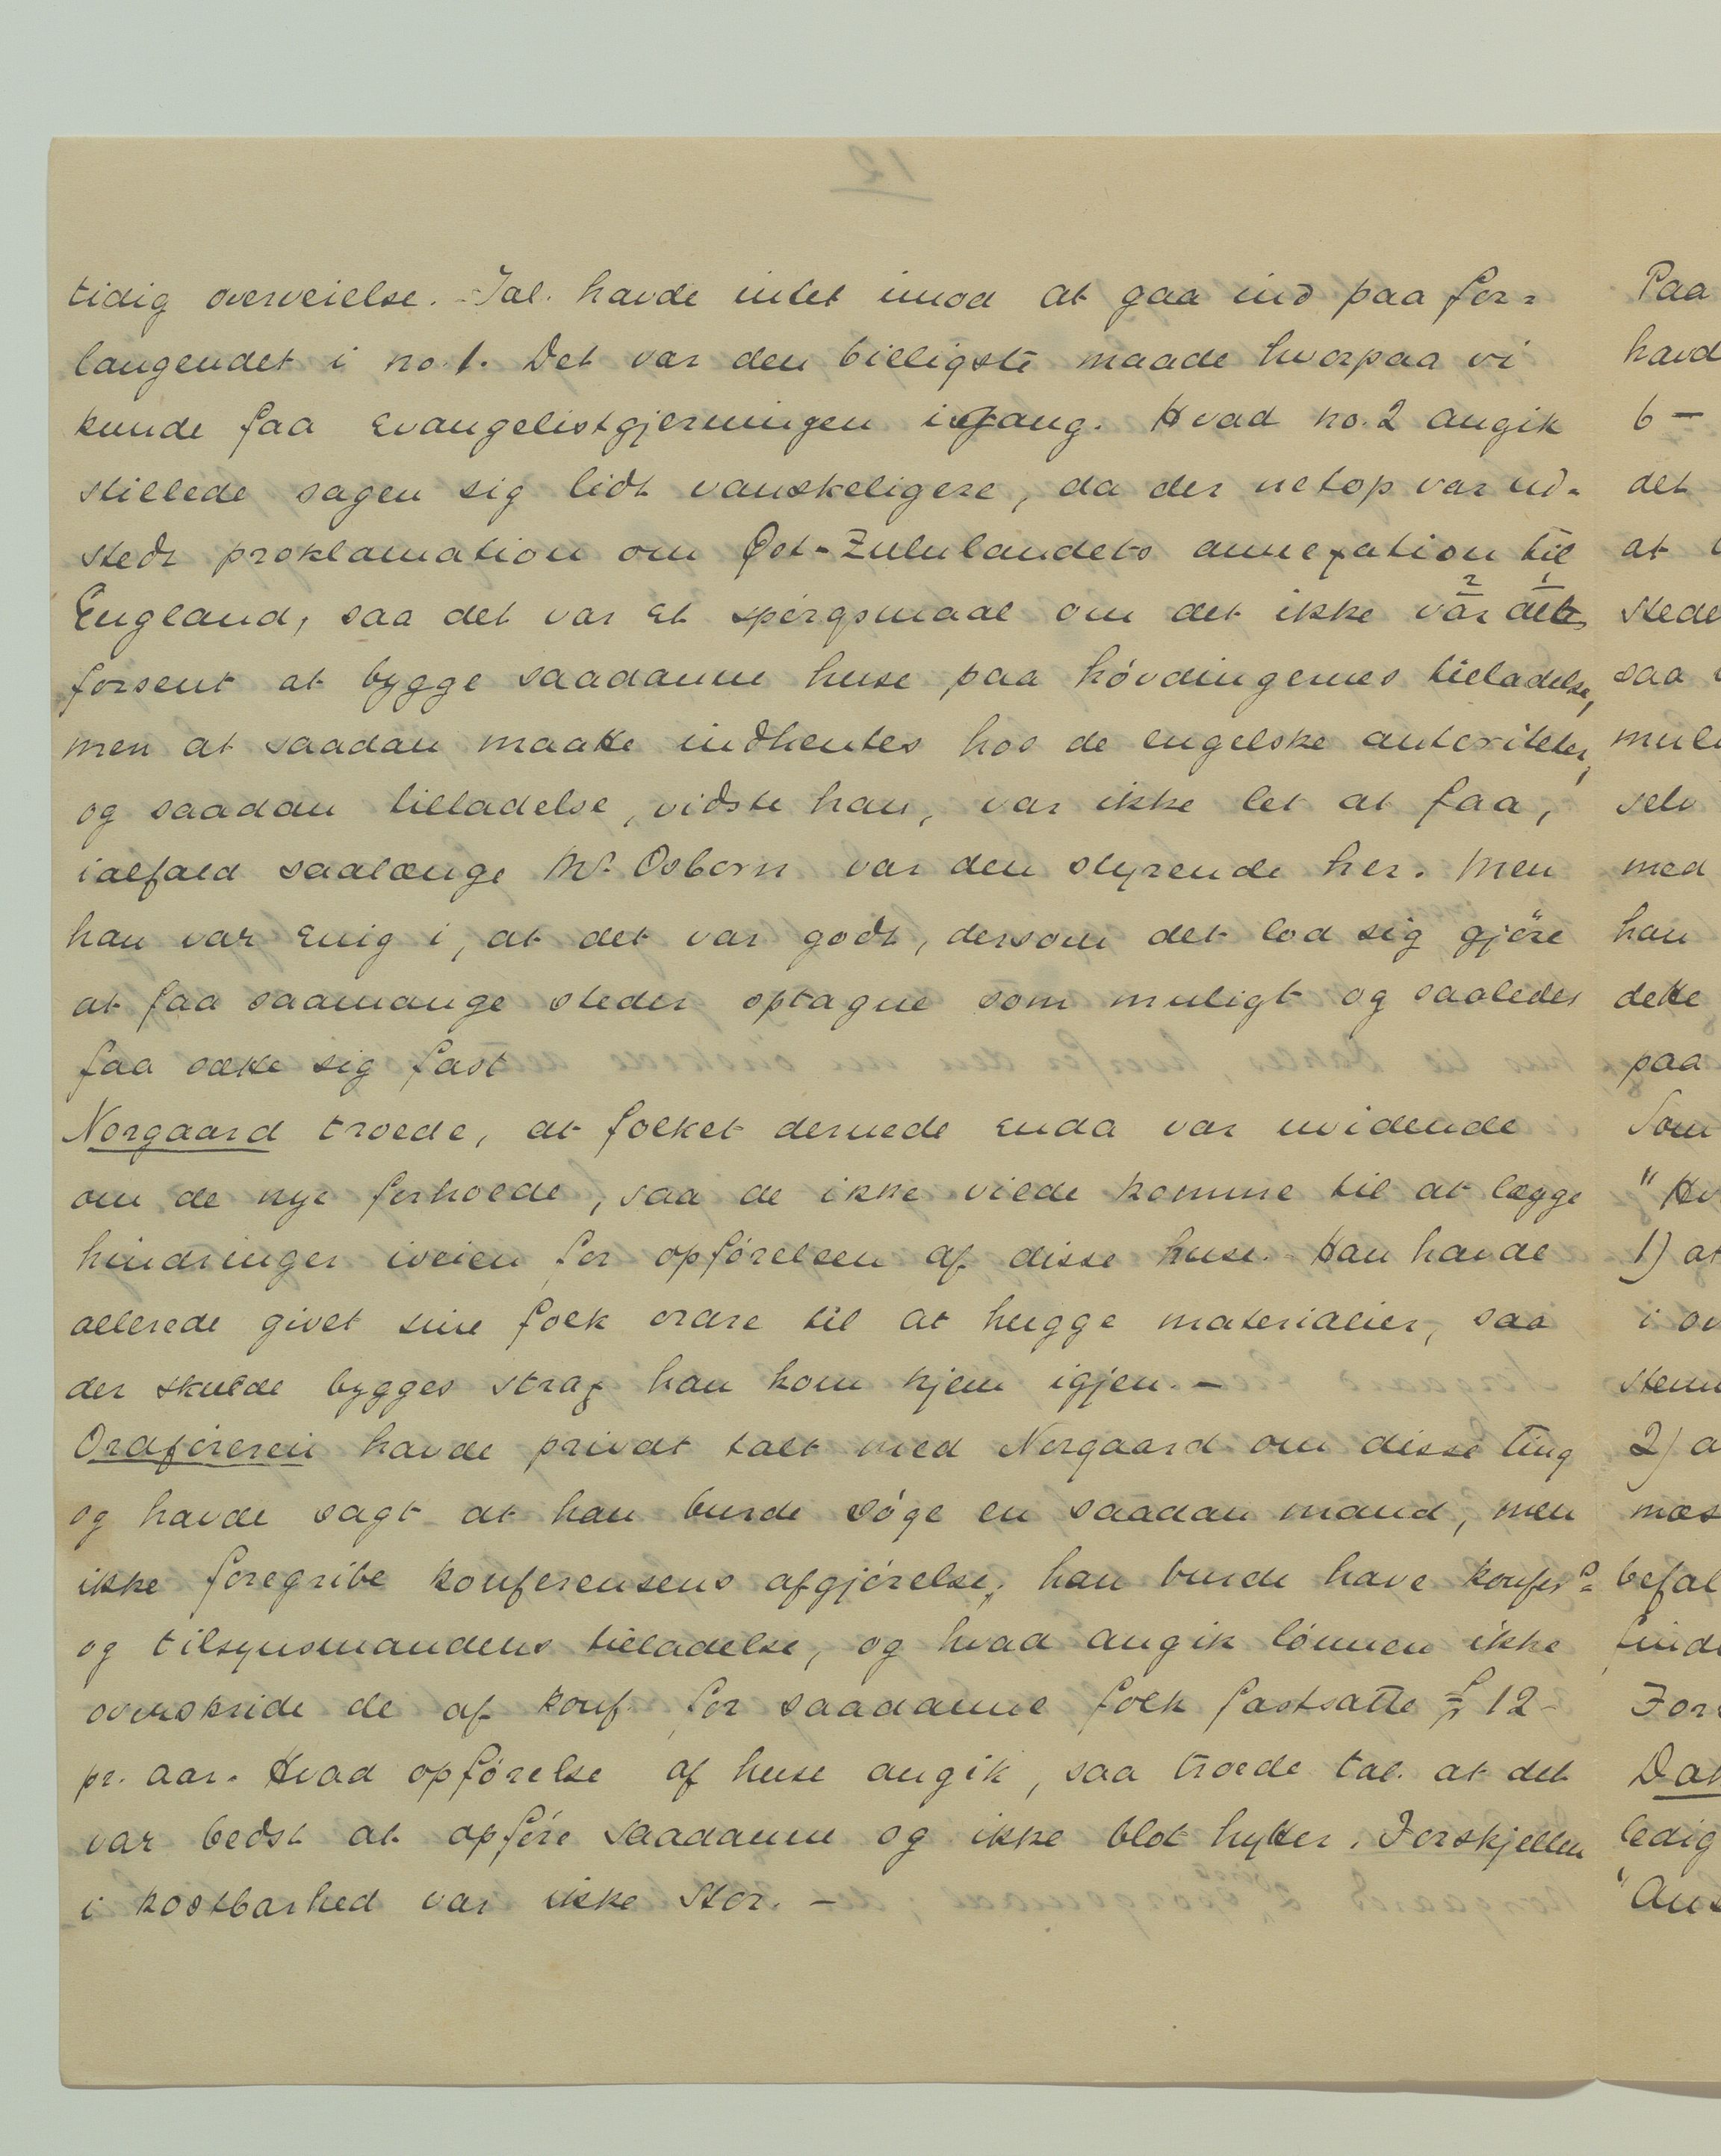 tidig overveielse. - Tal. havde intet imod at gaa ind paa for=
langendet i no. 1. Det var den billigste maade hvorpaa vi
kunde faa Evangelistgjerningen igang. Hvad no. 2 angik
stillede sagen sig lidt vanskeligere, da der netop var ud=
stedt proklamation om Øst-Zululandets annexation til
2 1
England, saa det var et spørgsmaal om det ikke var det
forsent at bygge saadanne huse paa høvdingernes tilladelse,
men at saadan maatte indhentes hos de engelske autoriteter,
og saadan tilladelse, vidste han, var ikke let at faa,
ialfald saalænge Mr. Osborn var den styrende her. Men
han var enig i, at det var godt, dersom det lod sig gjøre
at faa saamange steder optagne som muligt og saaledes
faa sætte sig fast
Norgaard troede, at folket dernede enda var uvidende
om de nye forholde, saa de ikke vilde komme til at lægge
hindringer iveien for opførelsen af disse huse. Han havde
allerede givet sine folk ordre til at hugge materialier, saa
der skulde bygges strax han kom hjem igjen. -
Ordføreren havde privat talt med Norgaard om disse ting
og havde sagt at han burde søge en saadan mand, men
ikke foregribe konferensens afgjørelse; han burde have konfer=
og tilsynsmandens tilladelse, og hvad angik lønnen ikke
overskride de af konf. for saadanne folk fastsatte £ 12 -
pr. aar. Hvad opførelse af huse angik, saa troede tal. at det
var bedst at opføre saadanne og ikke blot hytter. Forskjellen
i kostbarhed var ikke stor. -
Paa
havd
6 -
det
at
stede
saa
muli
selv
med
han
dette
paa
Som
" Hv
1) at
i ov
stem
2) a
mæs
befal
finde
For
Dah
ledig
"Ans
12